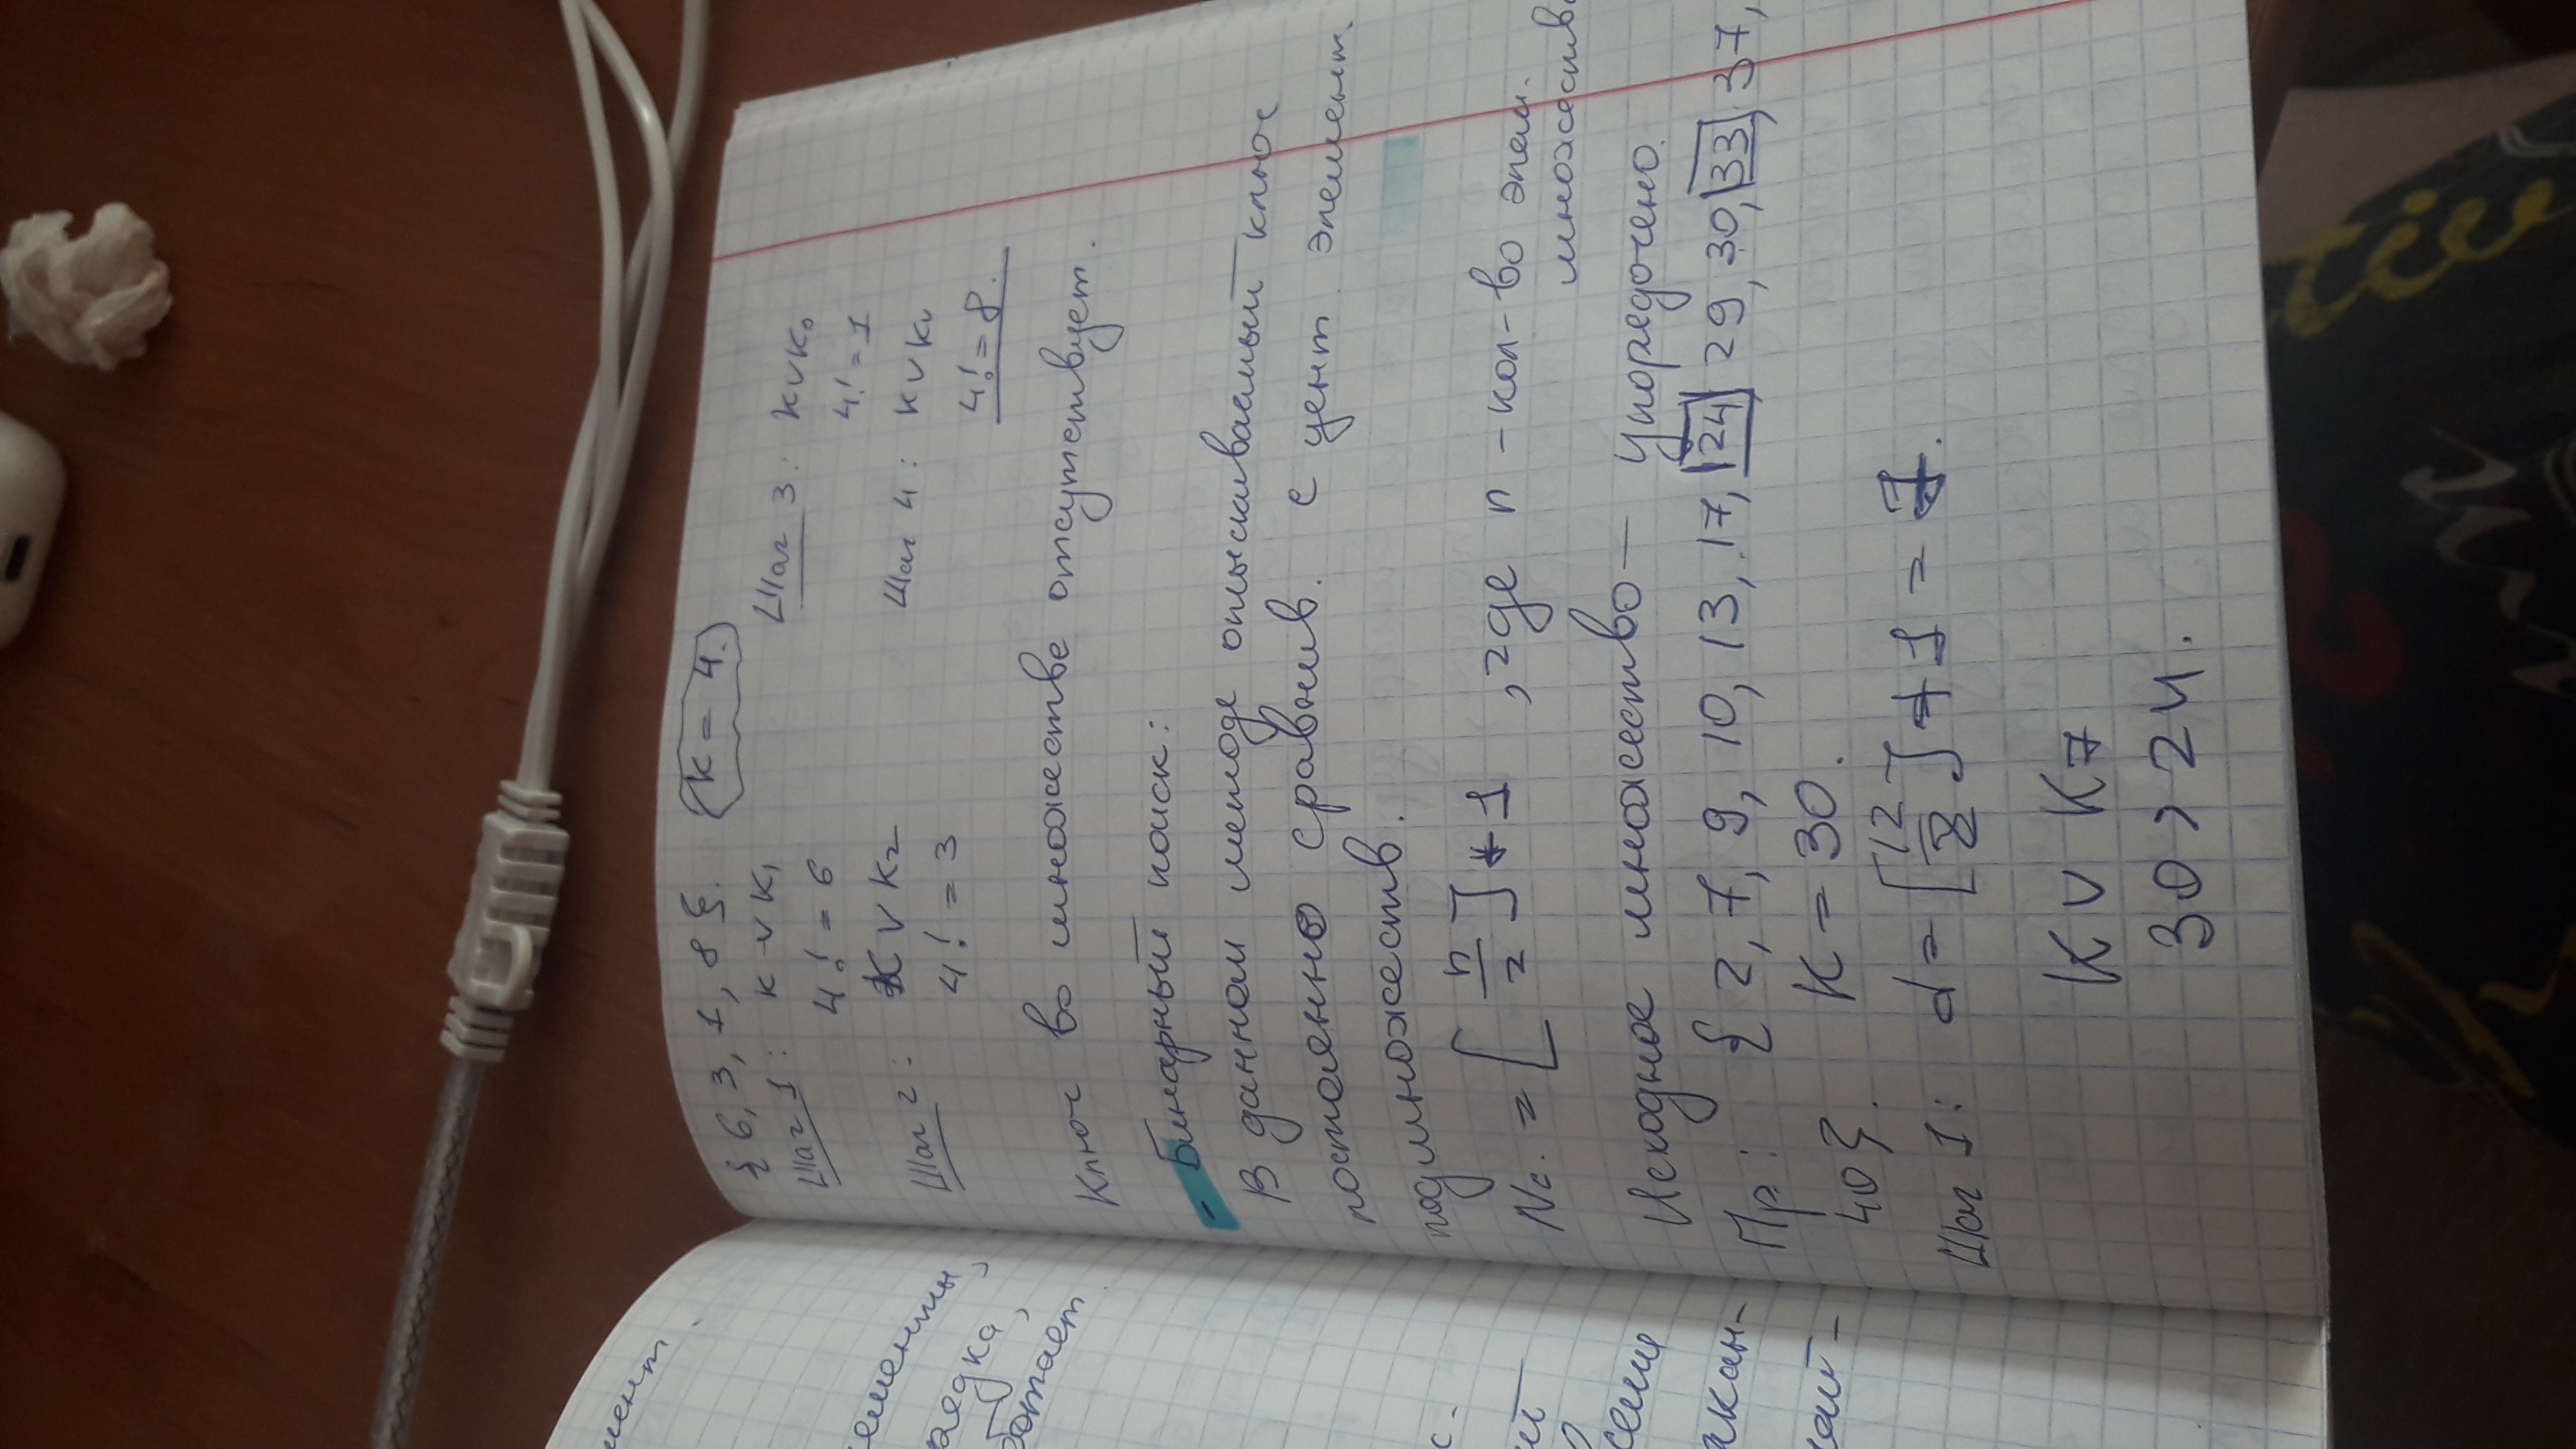 мент.
ементы,
рядка,
ботает
с.
сение
акан-
чай-
{6, 3, 1, 8}. K = 4.
Шаг 1: K v K1
4! = 6
Шаг 2: K v K2
4! = 3
Шаг 3: K v K3
4! = 1
Шаг 4: K v K4
4! = 8.
Ключ во множестве отсутствует.
- Бинарный поиск:
В данном методе отыскиваемый ключ
постоянно сравнив. с цент. элемент.
подмножеств.
Nc. = [n/2] + 1, где n - кол-во элем.
множества
Исходное множество — упорядочено.
Пр: {2, 7, 9, 10, 13, 17, 24, 29, 30, 33, 37,
40}. K = 30.
Шаг 1: d = [12/2] + 1 = 7.
K v K7
30 > 24.